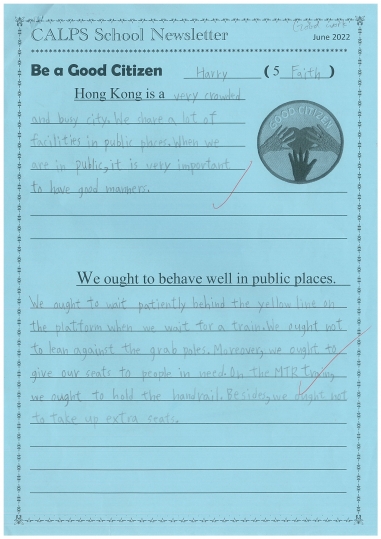 Good work!
CALPS School Newsletter
June 2022
Be a Good Citizen Harry ( 5 Faith )
Hong Kong is a very crowded
and busy city. We have a lot of
facilities in public places. When we
are in public, it is very important
to have good manners.
GOOD CITIZEN
We ought to behave well in public places.
We ought to wait patiently behind the yellow line on
the platform when we wait for a train. We ought not
to lean against the grab poles. Moreover, we ought to
give our seats to people in need. On the MTR train,
we ought to hold the handrail. Besides, we ought not
to take up extra seats.